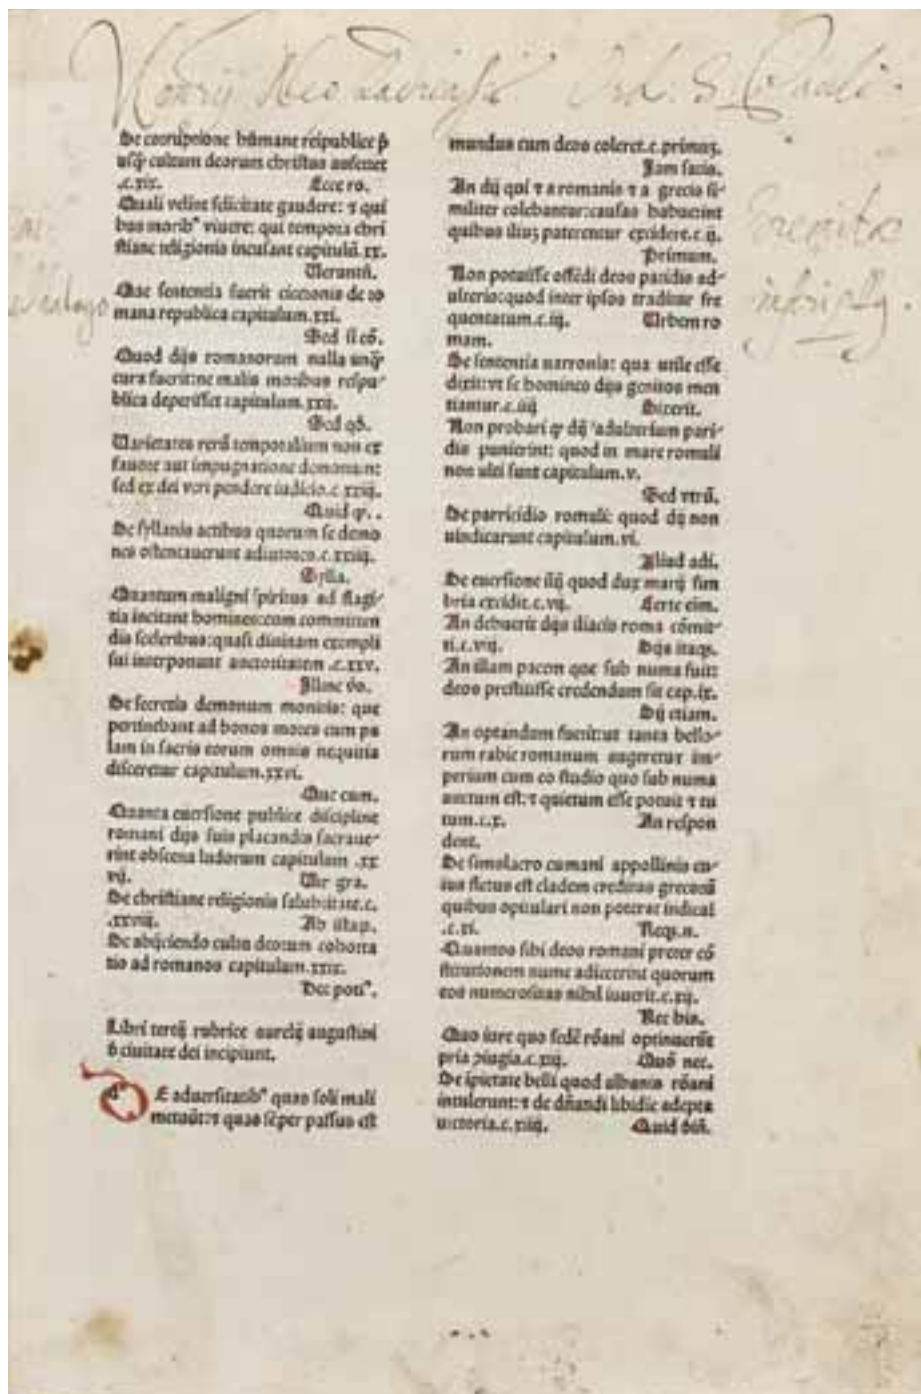 Ord. S. Pauli.
Eremitæ
De corruptione humane reipublice p̄
usq̄ cultum deorum christus auferret
.c.xix. Ecce ro.
Quali velint felicitate gaudere: ⁊ qui
bus moribꝰ viuere: qui tempora chri
stiane religionis incusant capitulū.xx.
Uerumtñ.
Que sententia fuerit ciceronis de ro
mana republica capitulum.xxi.
Sed si cō.
Quod dijs romanorum nulla unq̄
cura fuerit:ne malis moribus respu-
blica deperisset capitulum.xxij.
Sed qđ.
Uarietates rerū temporalium non ex
fauore aut impugnatione demonum:
sed ex dei veri pendere iudicio.c.xxiij.
Quid q̄.
De syllanis actibus quorum se demo
nes ostentauerunt adiutores.c.xxiiij.
Sylla.
Quantum maligni spiritus ad flagi-
tia incitant homines:cum committen
dis sceleribus:quasi diuinam exempli
sui interponunt auctoritatem .c.xxv.
Illinc v̄o.
De secretis demonum monitis: que
pertinebant ad bonos mores cum pa
lam in sacris eorum omnis nequitia
disceretur capitulum.xxvi.
Que cum.
Quanta euersione publice discipline
romani dijs suis placandis sacraue-
rint obscena ludorum capitulum .xx
vij. Uir gra.
De christiane religionis salubritate.c.
.xxviij. Ab istap.
De abijciendo cultu deorum cohorta
tio ad romanos capitulum.xxix.
Hec potiꝰ.
Libri tercij rubrice aurelij augustini
đ ciuitate dei incipiunt.
dᵉ E aduersitatibꝰ quas soli mali
metuūt:⁊ quas sēper passus est
mundus cum deos coleret.c.primuʒ.
Iam facio.
An dij qui ⁊ a romanis ⁊ a grecis si-
militer colebantur:causas habuerint
quibus iliuʒ paterentur excidere.c.ij.
Primum.
Non potuisse offēdi deos paridis ad-
ulterio:quod inter ipsos traditur fre
quentatum.c.iij. Urbem ro
mam.
De sententia uarronis: qua utile esse
dixit:vt se homines dijs genitos men
tiantur.c.iiij Dixerit.
Non probari q̄ dij adulterium pari-
dis punierint: quod in mare romuli
non ulti sunt capitulum.v.
Sed vtrū.
De parricidio romuli: quod dij non
uindicarunt capitulum.vi.
Illud adi.
De euersione ilij quod dux marij fim
bria excidit.c.vij. Certe eim.
An debuerit dijs iliacis roma cōmit-
ti.c.viij. Dijs itaqʒ.
An illam pacem que sub numa fuit:
deos prestitisse credendum sit cap.ix.
Dij etiam.
An optandum fuerit:ut tanta bello-
rum rabie romanum augeretur im-
perium cum eo studio quo sub numa
auctum est:⁊ quietum esse potuit ⁊ tu
tum.c.x. An respon
dent.
De simolacro cumani appollinis cu-
ius fletus est cladem creditus grecorū
quibus opitulari non poterat indicasse
.c.xi. Neqʒ.n.
Quantos sibi deos romani preter cō
stitutionem nume adiecerint quorum
eos numerositas nihil iuuerit.c.xij.
Nec his.
Quo iure quo fedē rōani optinuerūt
pria ↄiugia.c.xiij. Quō nec.
De īpietate belli quod albanis rōani
intulerunt:⁊ de dn̄andi libidie adepta
uictoria.c.xiiij. Quid đin̄.